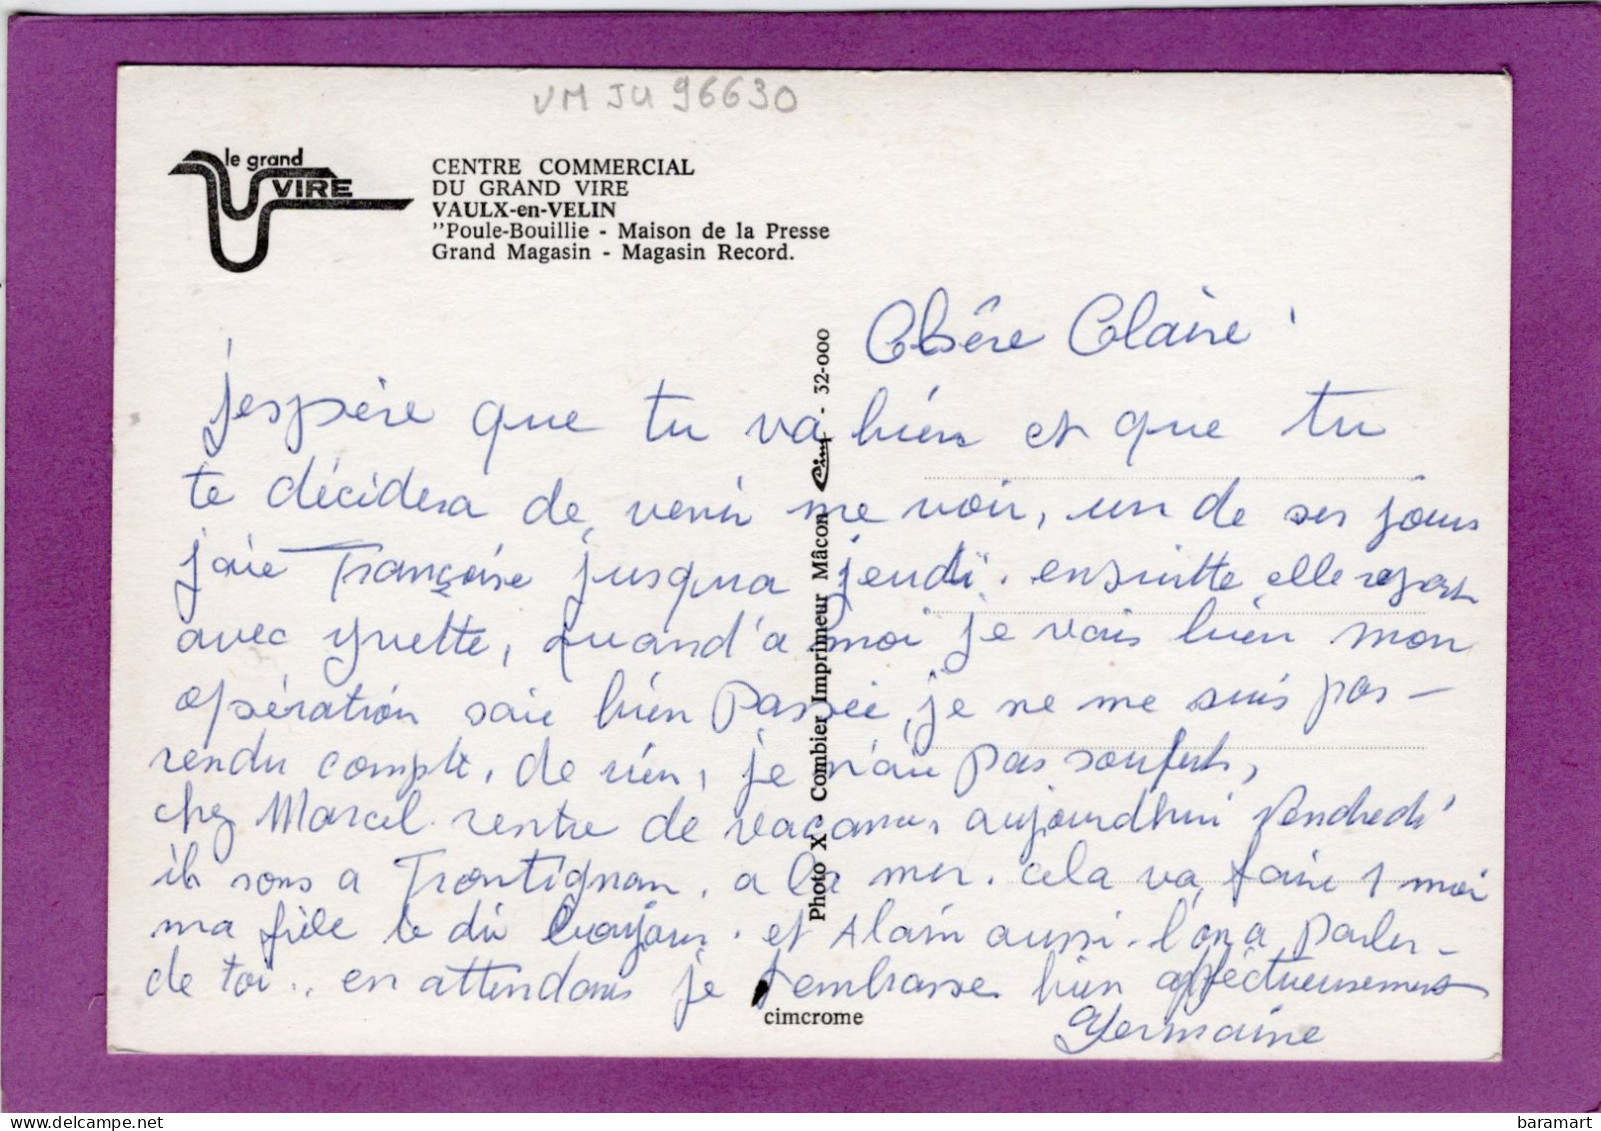 VM JU 96630
le grand
VIRE
CENTRE COMMERCIAL
DU GRAND VIRE
VAULX-en-VELIN
"Poule-Bouillie - Maison de la Presse
Grand Magasin - Magasin Record.
Chère Claire
j'espère que tu va bien et que tu
te décidera de venir me voir, un de ses jours
jaie Françoise jusqua jeudi. ensuitte elle repart
avec yvette, quand'a moi je vais bien mon
opération saie bien Passée, je ne me suis pas -
rendu compte, de rien, je n'aie pas souferts,
chez Marcel rentre de vacances, aujourdhui Vendredi
ils sons a Frontignan. a la mer. cela va faire 1 moi
ma fiele te di bonjour. et Alain aussi. l'on a parler -
de toi.. en attendans je t'embrasse bien affectueusement
Germaine
Photo X Combier Imprimeur Mâcon - Cim - 32-000
cimcrome
baramart